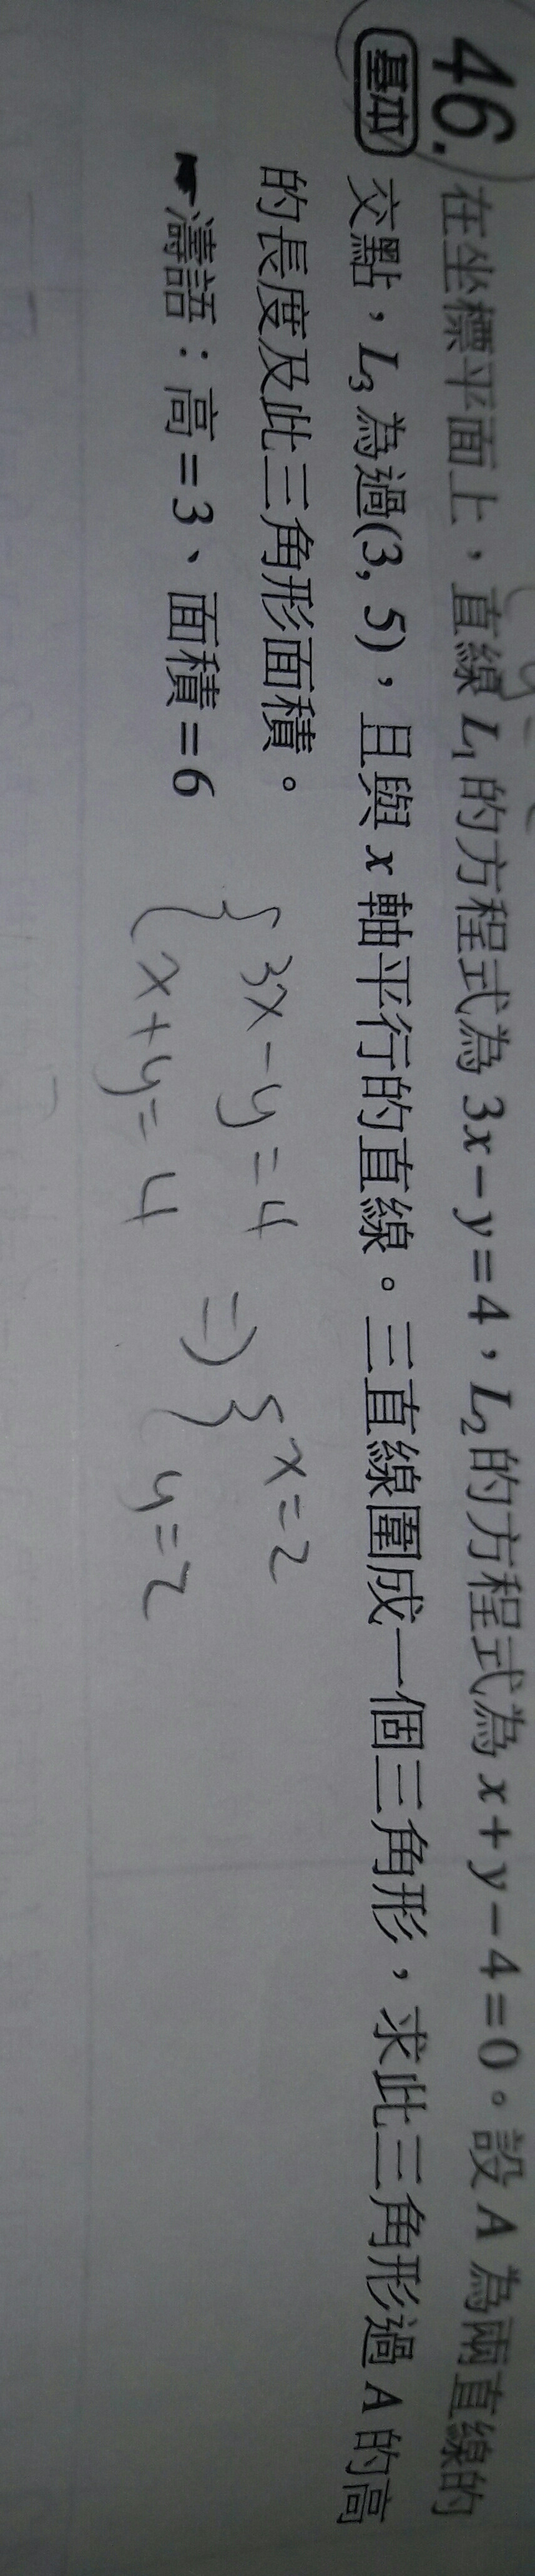 46. 在坐標平面上，直線 L₁ 的方程式為 3x－y＝4，L₂ 的方程式為 x＋y－4＝0。設 A 為兩直線的
基本 交點，L₃ 為過(3, 5)，且與 x 軸平行的直線。三直線圍成一個三角形，求此三角形過 A 的高
的長度及此三角形面積。
☛濤語：高＝3、面積＝6
{ 3x－y＝4 ⇒ { x＝2
x＋y＝4 y＝2